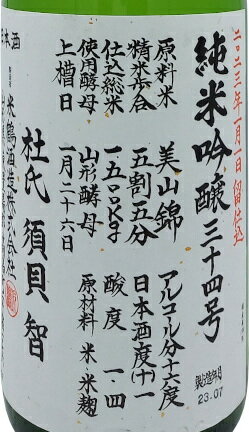 二〇二三年一月一日留仕込
純米吟醸三十四号
原料米 美山錦 アルコール分十六度
精米歩合 五割五分 日本酒度(+)一
仕込総米 一五〇〇kg 酸度 一・四
使用酵母 山形酵母 原材料 米・米麹
上槽日 一月二十六日
杜氏 須貝智
米鶴酒造株式会社
本酒
製造年月
23.07